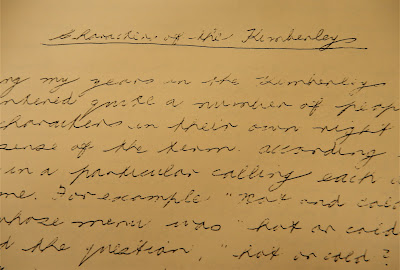 Characters of the Kimberley
ng my years in the Kimberley
ntered quite a number of peop
characters in their own right
sense of the term. according
in a particular calling each
me. For example "Hot and cold
whose menu was "hot or cold
d the question, "hot or cold?